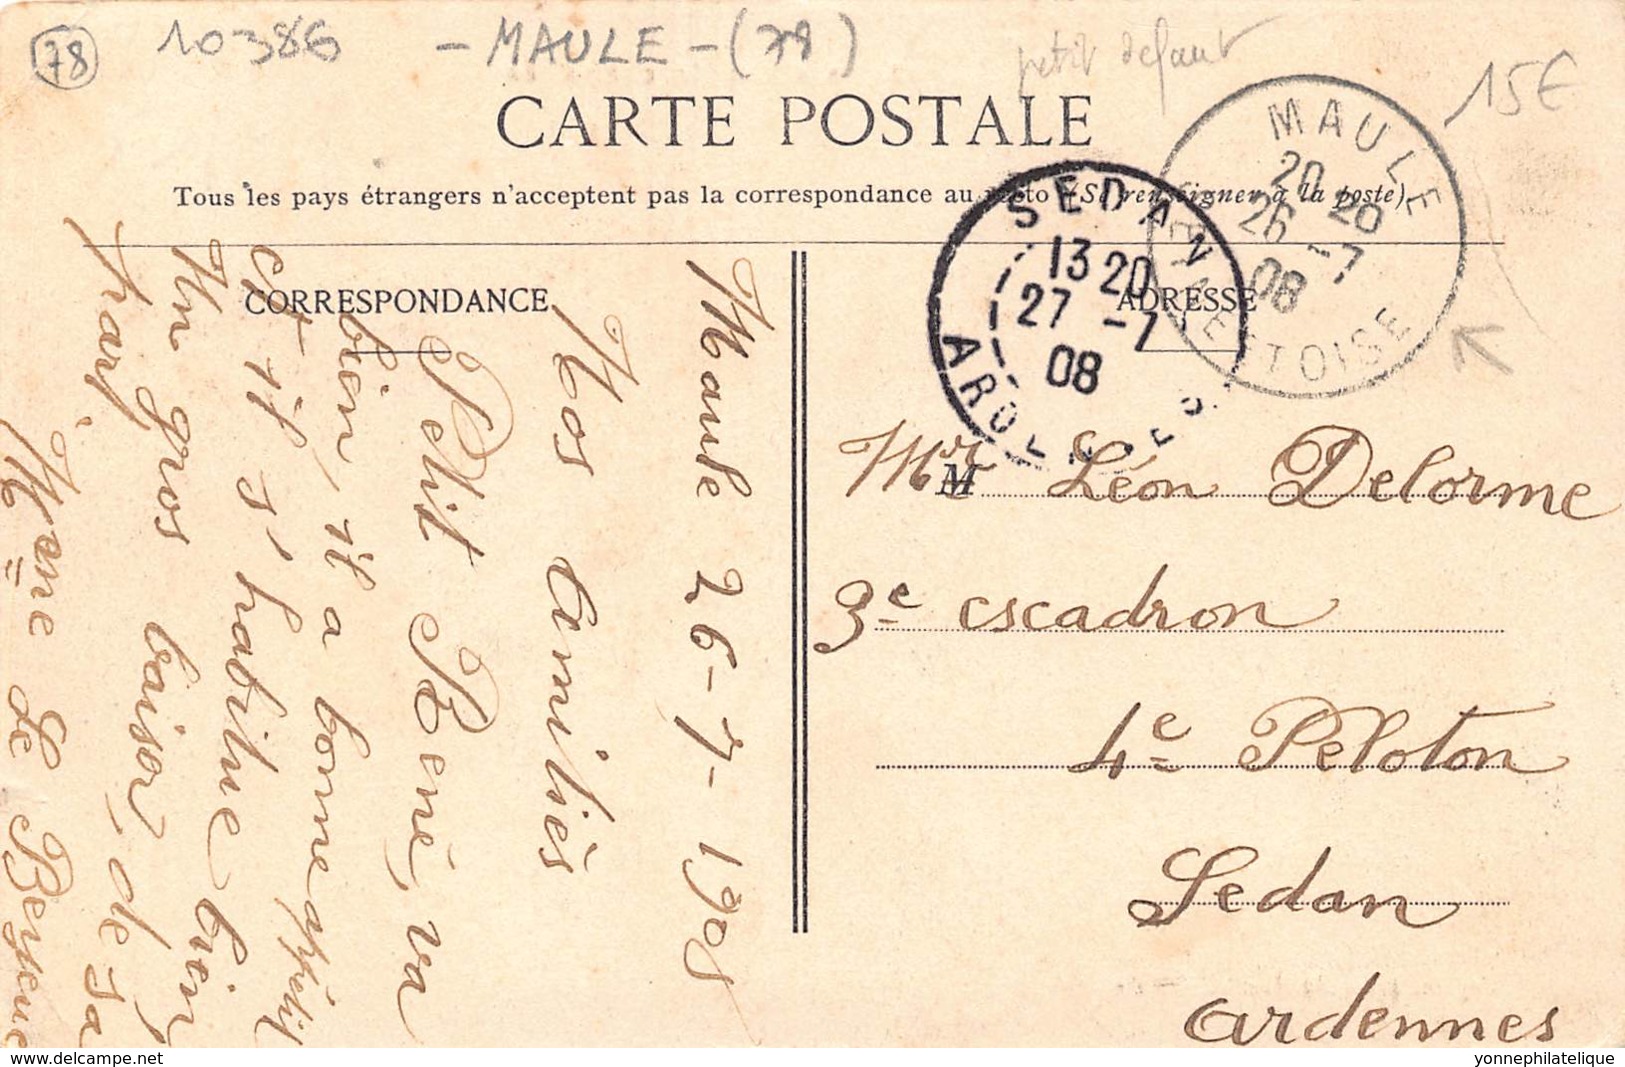 78
10386
- MAULE - (78)
petit defaut
15€
CARTE POSTALE
Tous les pays étrangers n'acceptent pas la correspondance au recto (Se renseigner à la poste)
CORRESPONDANCE
ADRESSE
MAULE
20 20
26 -7
08
SEINE-ET-OISE
SEDAN
13 20
27 -7
08
ARDENNES
Maule 26-7-1908
Nos Amitiés
Petit René, va
bien, il a bonne appétit
et il s'habitue bien
Un gros baiser, de sa
part,
Mme
M
Mr Léon Delorme
3e escadron
4e Peloton
Sedan
Ardennes
yonnephilatelique